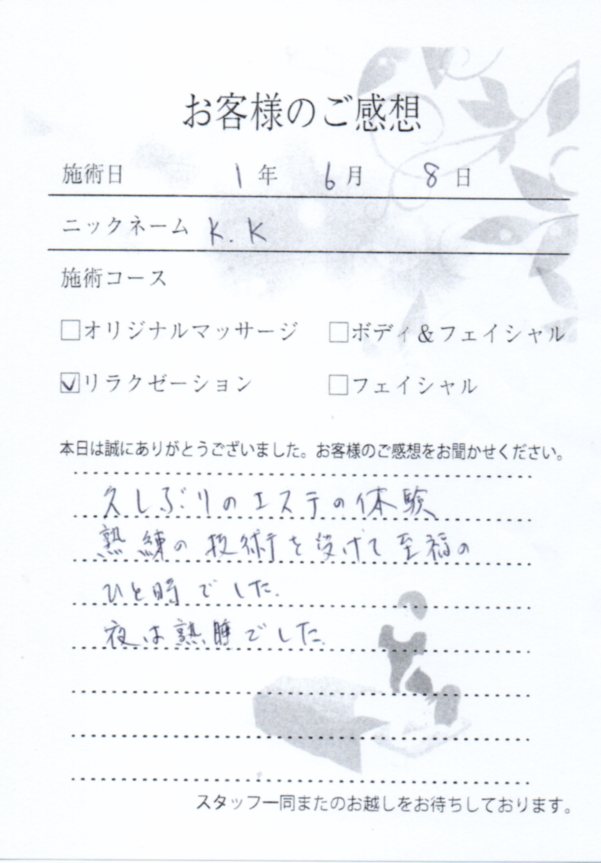 お客様のご感想
施術日 1年 6月 8日
ニックネーム K.K
施術コース
□オリジナルマッサージ □ボディ&フェイシャル
☑リラクゼーション □フェイシャル
本日は誠にありがとうございました。お客様のご感想をお聞かせください。
久しぶりのエステの体験
熟練の技術を受けて至福の
ひと時でした.
夜は熟睡でした.
スタッフ一同またのお越しをお待ちしております。